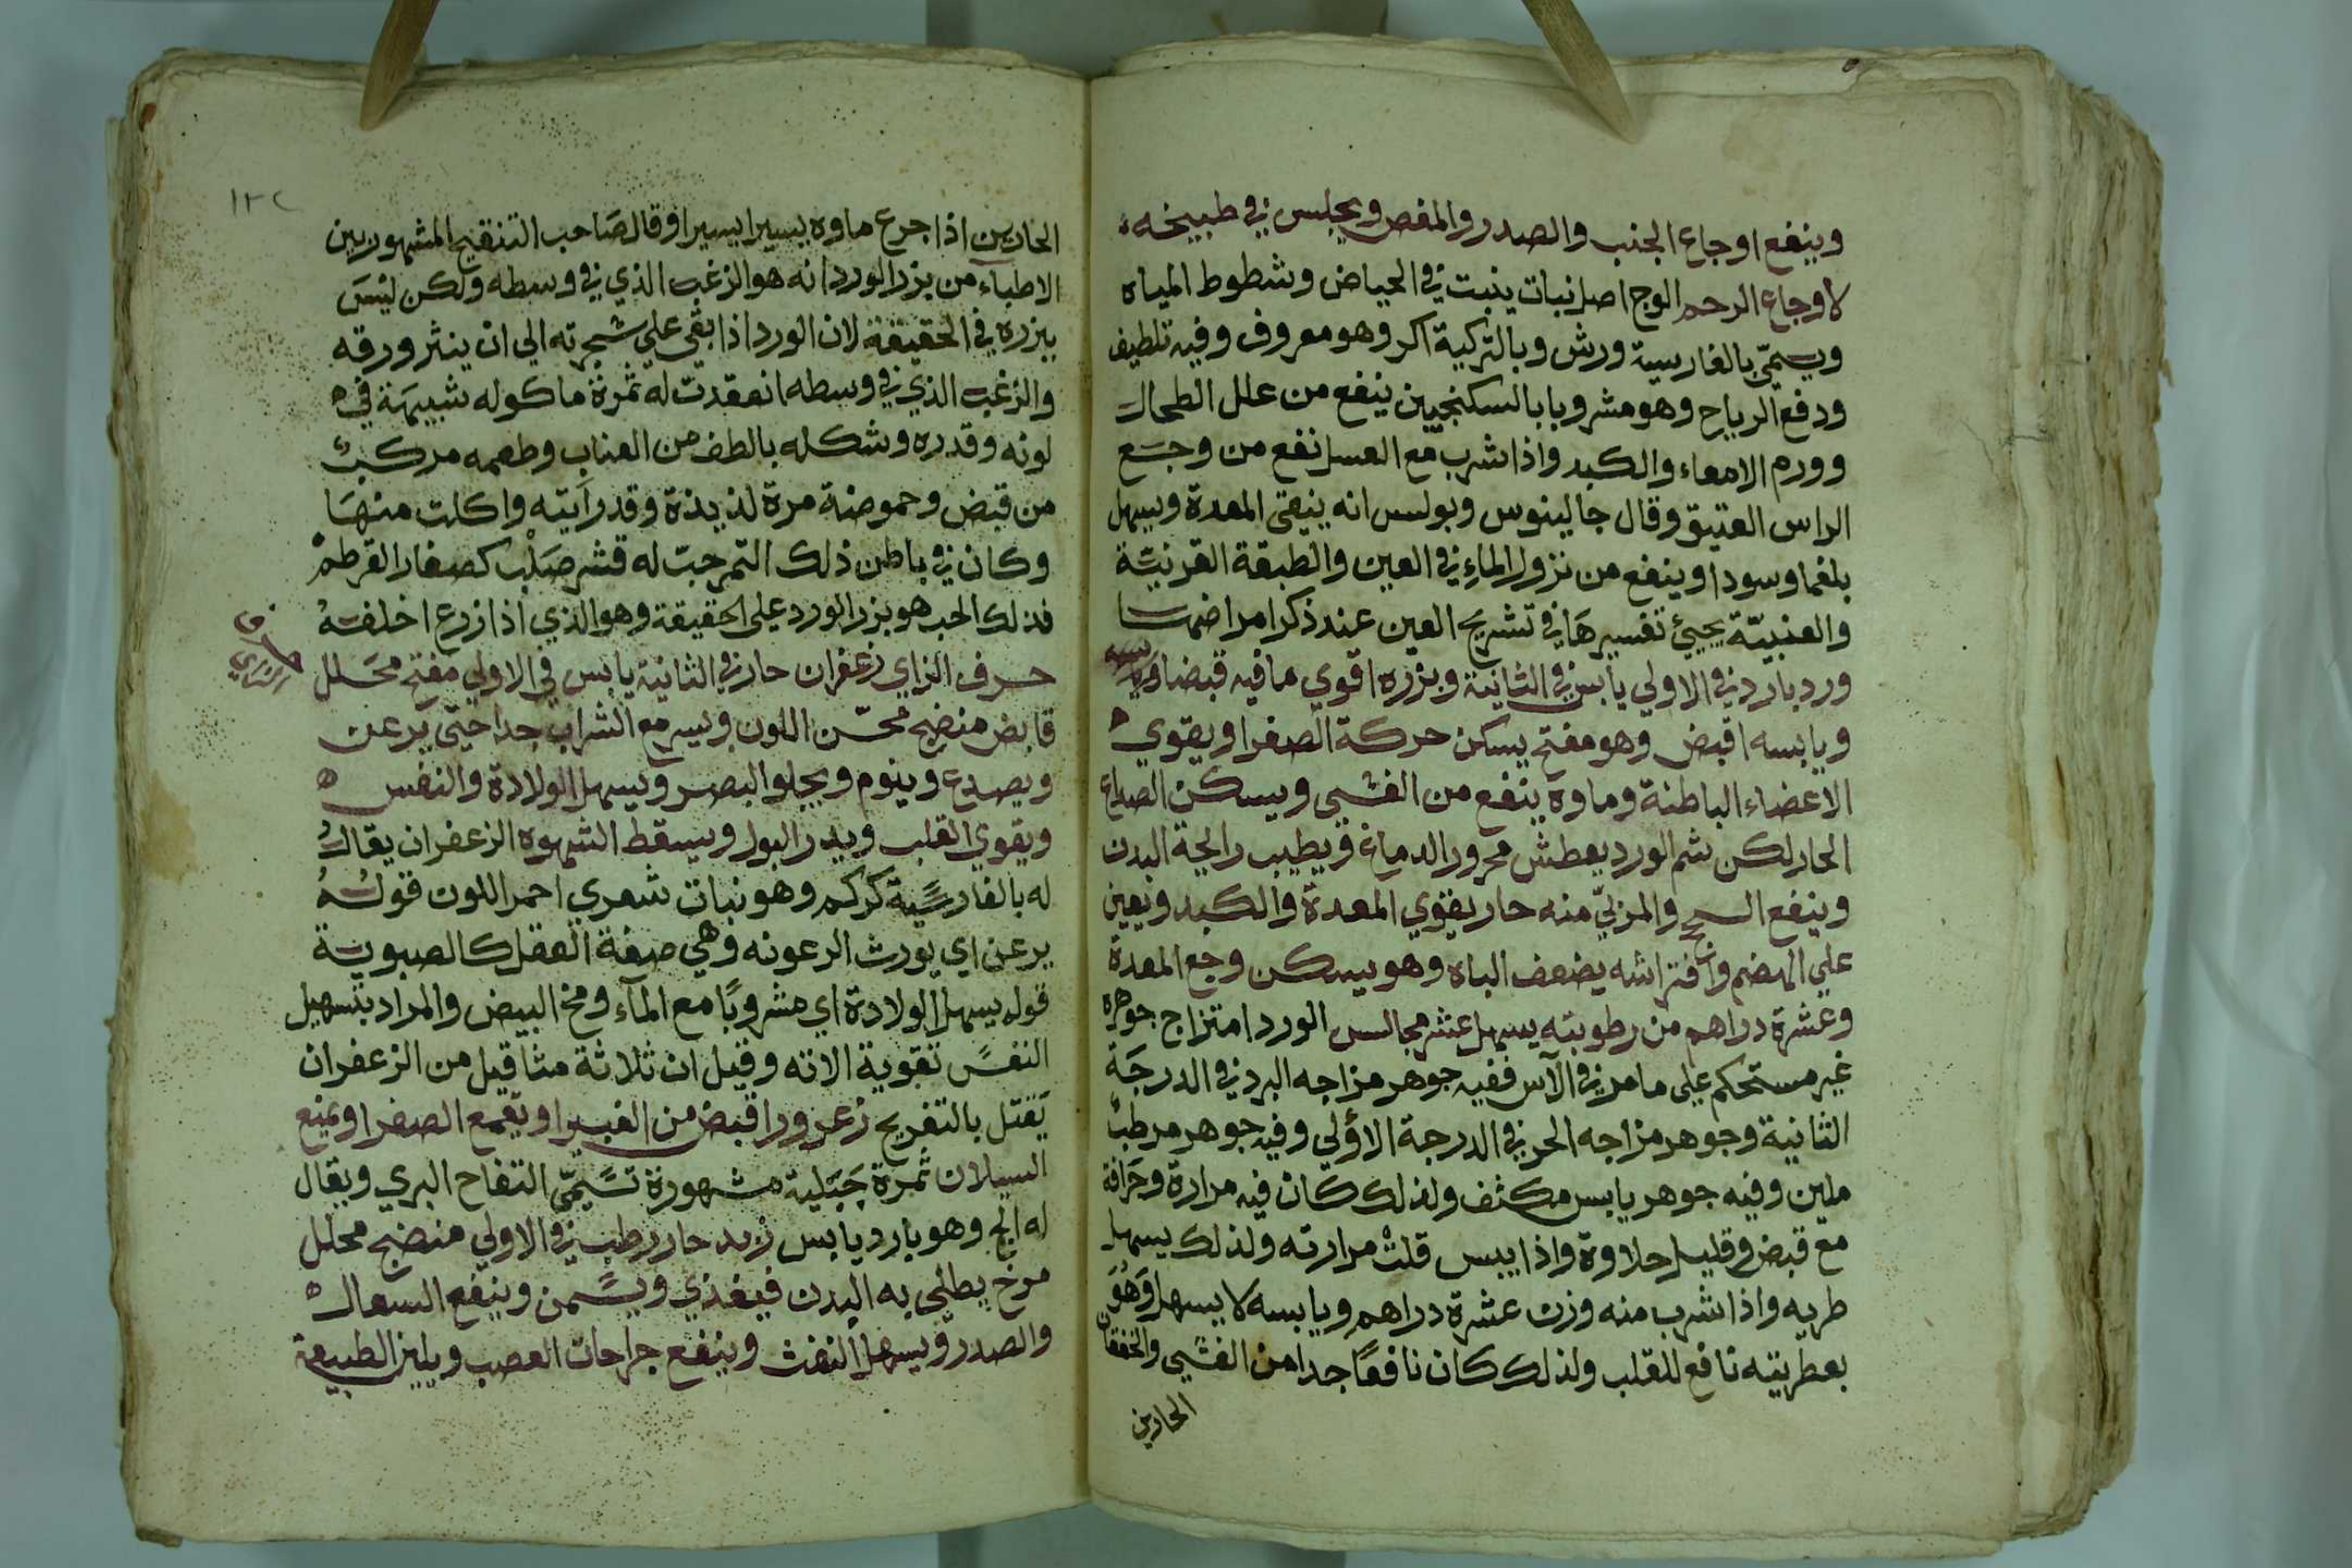 وينفع اوجاع الجنب والصدر والمغص ويجلس في طبيخه
لاوجاع الرحم الوج اصل نبات ينبت في الحياض وشطوط المياه
ويسمّى بالفارسية ورش وبالتركية اكر وهو معروف وفيه تلطيف
ودفع الرياح وهو مشروبا بالسكنجبين ينفع من علل الطحال
وورم الامعاء والكبد واذا شرب مع العسل نفع من وجع
الراس العتيق وقال جالينوس وبولس انه ينقى المعدة ويسهل
بلغما وسودا وينفع من نزول الماء في العين والطبقة القرنيّة
والعنبيّة يجيئ تفسيرها في تشريح العين عند ذكر امراضها
ورد بارد في الاولي يابس في الثانية وبزره اقوي ما فيه قبضا
ويابسه اقبض وهو مفتح يسكن حركة الصفرا ويقوي
الاعضاء الباطنة وماوه ينفع من الغشي ويسكن الصداع
الحار لكن شم الورد يعطش محرور الدماغ ويطيب رايحة البدن
وينفع السحج والمربّي منه حار يقوي المعدة والكبد ويعين
علي الهضم وافتراشه يضعف الباه وهو يسكن وجع المعدة
وعشرة دراهم من رطوبته يسهل عشر مجالس الورد امتزاج جوهره
غير مستحكم على ما مر في الآس ففيه جوهر مزاجه البرد في الدرجة
الثانية وجوهر مزاجه الحر في الدرجة الأولي وفيه جوهر مرطب
ملين وفيه جوهر يابس مكثف ولذلك كان فيه مرارة وحرافة
مع قبض وقليل حلاوة واذا يبس قلت مرارته ولذلك يسهل
طريه واذا شرب منه وزن عشرة دراهم ويابسه لا يسهل وهو
بعطريته نافع للقلب ولذلك كان نافعًا جدا من الغشي والخفقان
الحارين
١٣٢
الحارين اذا جرع ماوه يسيرا يسيرا وقال صاحب التنقيح المشهور بين
الاطباء من بزر الورد انه هو الزغب الذي في وسطه ولكن ليس
ببزره في الحقيقة لان الورد اذا بقي علي شجرته الي ان ينثر ورقه
والزغب الذي في وسطه انعقدت له ثمرة ماكوله شبيهة في
لونه وقدره وشكله بالطف من العناب وطعمه مركب
من قبض وحموضة مرة لذيذة وقد رأيته واكلت منها
وكان في باطن ذلك التمر حبّ له قشر صلب كصغار القرطم
فذلك الحب هو بزر الورد على الحقيقة وهو الذي اذا زرع اخلف
حرف الزاي
حرف الزاي زعفران حار في الثانية يابس في الاولي مفتح محلل
قابض منضج محسّن اللون ويسر مع الشراب جدا حتى يرعن
ويصدع وينوم ويجلو البصر ويسهل الولادة والنفس
ويقوي القلب ويدر البول ويسقط الشهوه الزعفران يقال
له بالفارسية كركم وهو نبات شعري احمر اللون قوله
يرعن اي يورث الرعونه وهي صفة العقل كالصبوية
قوله يسهل الولادة اي مشروبًا مع المآء ومخ البيض والمراد بتسهيل
النفس تقوية الاته وقيل ان ثلاثة مثاقيل من الزعفران
يقتل بالتفريح زعرور اقبض من الغبيرا ويقمع الصفرا ويمنع
السيلان ثمرة جبلية مشهورة تسمّى التفاح البري ويقال
له الج وهو بارد يابس زبد حار رطب في الاولي منضج محلل
مرخ يطلي به البدن فيغذي ويسمن وينفع السعال
والصدر ويسهل النفث وينفع جراحات العصب ويلين الطبيعة